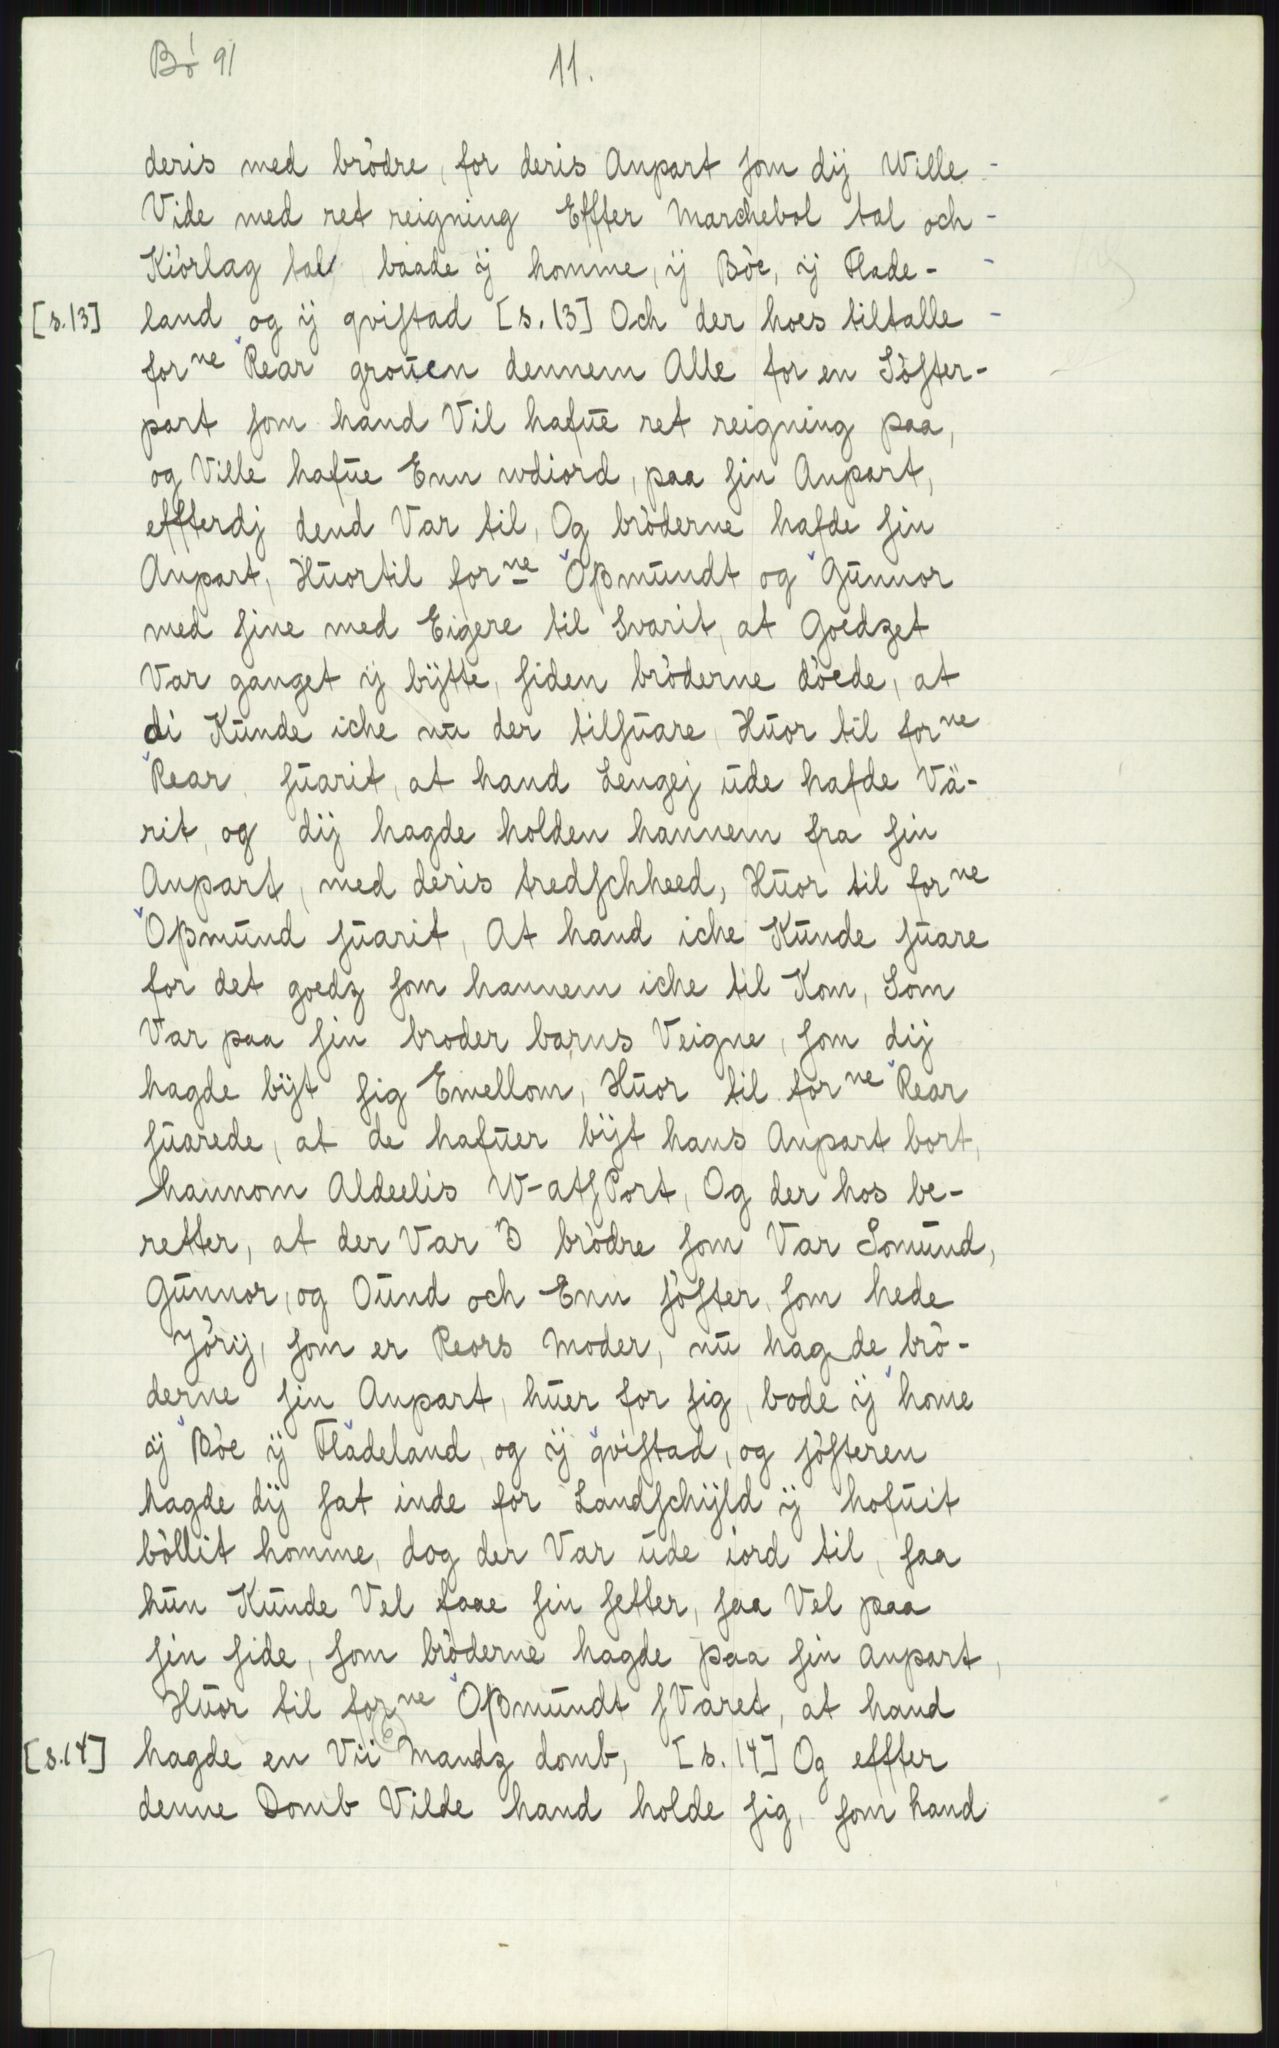 Bö 91
11.
deris med brödre, for deris Anpart som dÿ Wille -
Vide med ret reigning Effter Marchebol tal och -
Kiörlag tal, baade ÿ homme, ÿ Böe, ÿ Flade- -
[s.13] land og ÿ qvistad [s.13] Och der hoes tiltalle -
forne Rear grouen dennem Alle for en Söster-
part som hand Vil hafue ret reigning paa,
og Ville hafue Enn udiord, paa sin Anpart,
effterdj dend Var til, Og bröderne hafde sin
Anpart, Huortil forne Oßmundt og Gunnor
med sine med Eigere til Svarit, at Goedzet
Var ganget ÿ bÿtte, siden bröderne döede, at
di Kunde iche nu der tilsuare, Huor til forne
Rear suarit, at hand Lengej ude hafde Vä-
rit, og dÿ hagde holden hannem fra sin
Anpart, med deris tredschheed, Huor til forne
Oßmund suarit, At hand iche Kunde suare
for det goedz som hannem iche til Kom, Som
Var paa sin broder barns Veigne, som dÿ
hagde bÿt sig Emellom, Huor til forne Rear
suarede, at de hafuer bÿt hans Anpart bort,
hannom Aldeelis W-atsPort, Og der hos be-
retter, at der Var 3 brödre som Var Somund,
Gunnor, og Ound och Enn söster, som hede
Jörÿ, som er Reors Moder, nu hagde brö-
derne sin Anpart, huer for sig, bode ÿ home
ÿ Böe ÿ Fladeland, og ÿ qvistad, og sösteren
hagde dÿ sat inde for Landschÿld ÿ hofuit
böllit homme, dog der Var ude iord til, saa
hun Kunde Vel faae sin setter, saa Vel paa
sin side, som bröderne hagde paa sin anpart,
Huor til forne Oßmundt sVaret, at hand
[s.14] hagde en Vii Mandz domb, [s.14] Og effter
denne Domb Vilde hand holde sig, som hand